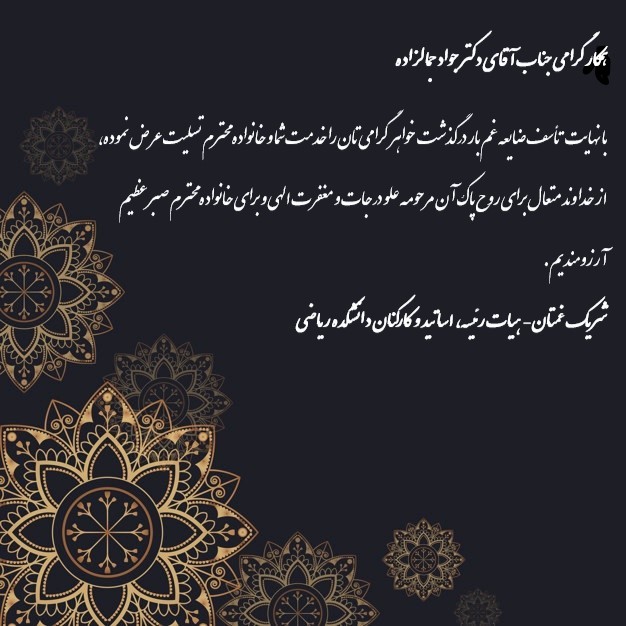 همکار گرامی جناب آقای دکتر جواد جمالزاده
با نهایت تأسف ضایعه غم بار درگذشت خواهر گرامی تان را خدمت شما و خانواده محترم تسلیت عرض نموده،
از خداوند متعال برای روح پاک آن مرحومه علو درجات و مغفرت الهی و برای خانواده محترم صبر عظیم
آرزومندیم .
شریک غمتان- هیات رئیسه، اساتید و کارکنان دانشکده ریاضی